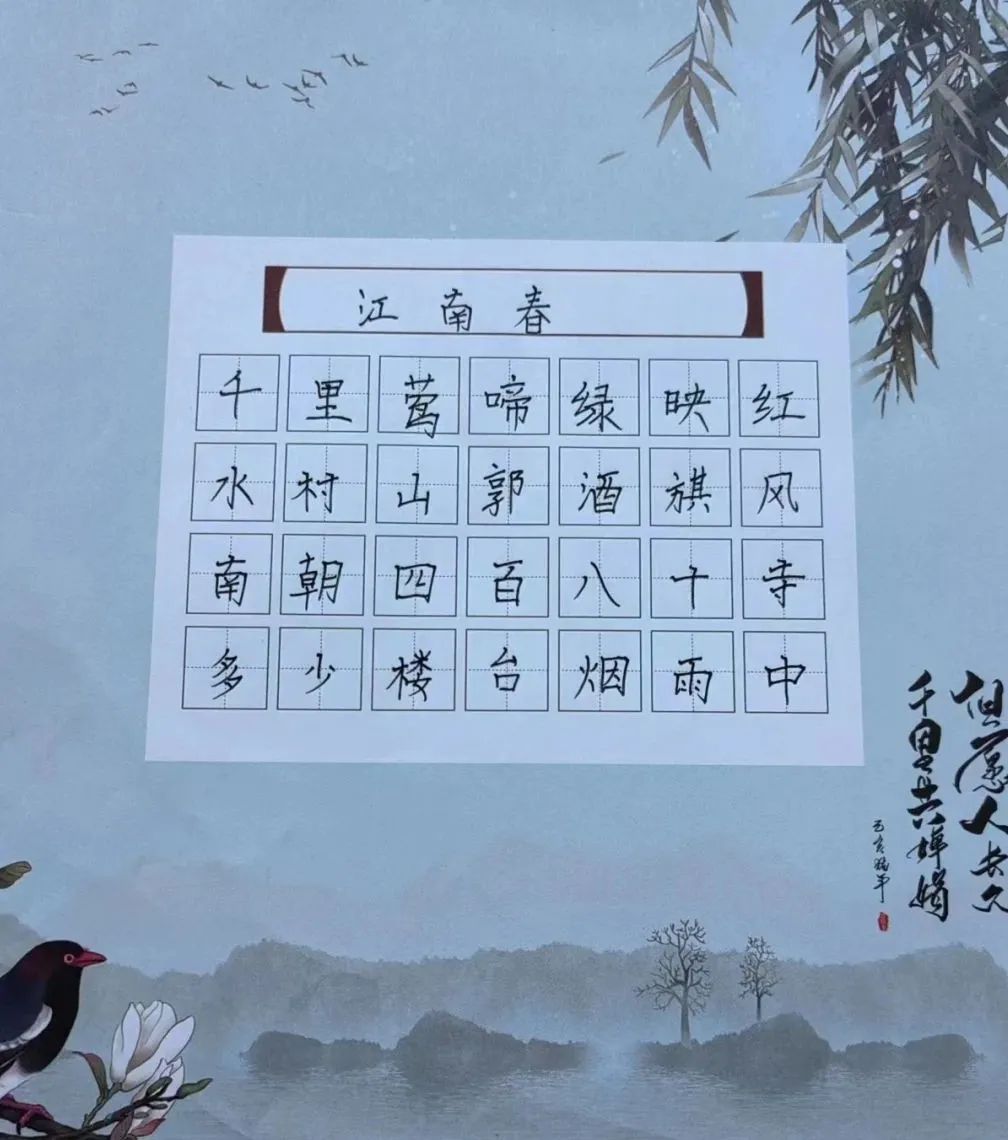 江南春
千里莺啼绿映红
水村山郭酒旗风
南朝四百八十寺
多少楼台烟雨中
但愿人长久
千里共婵娟